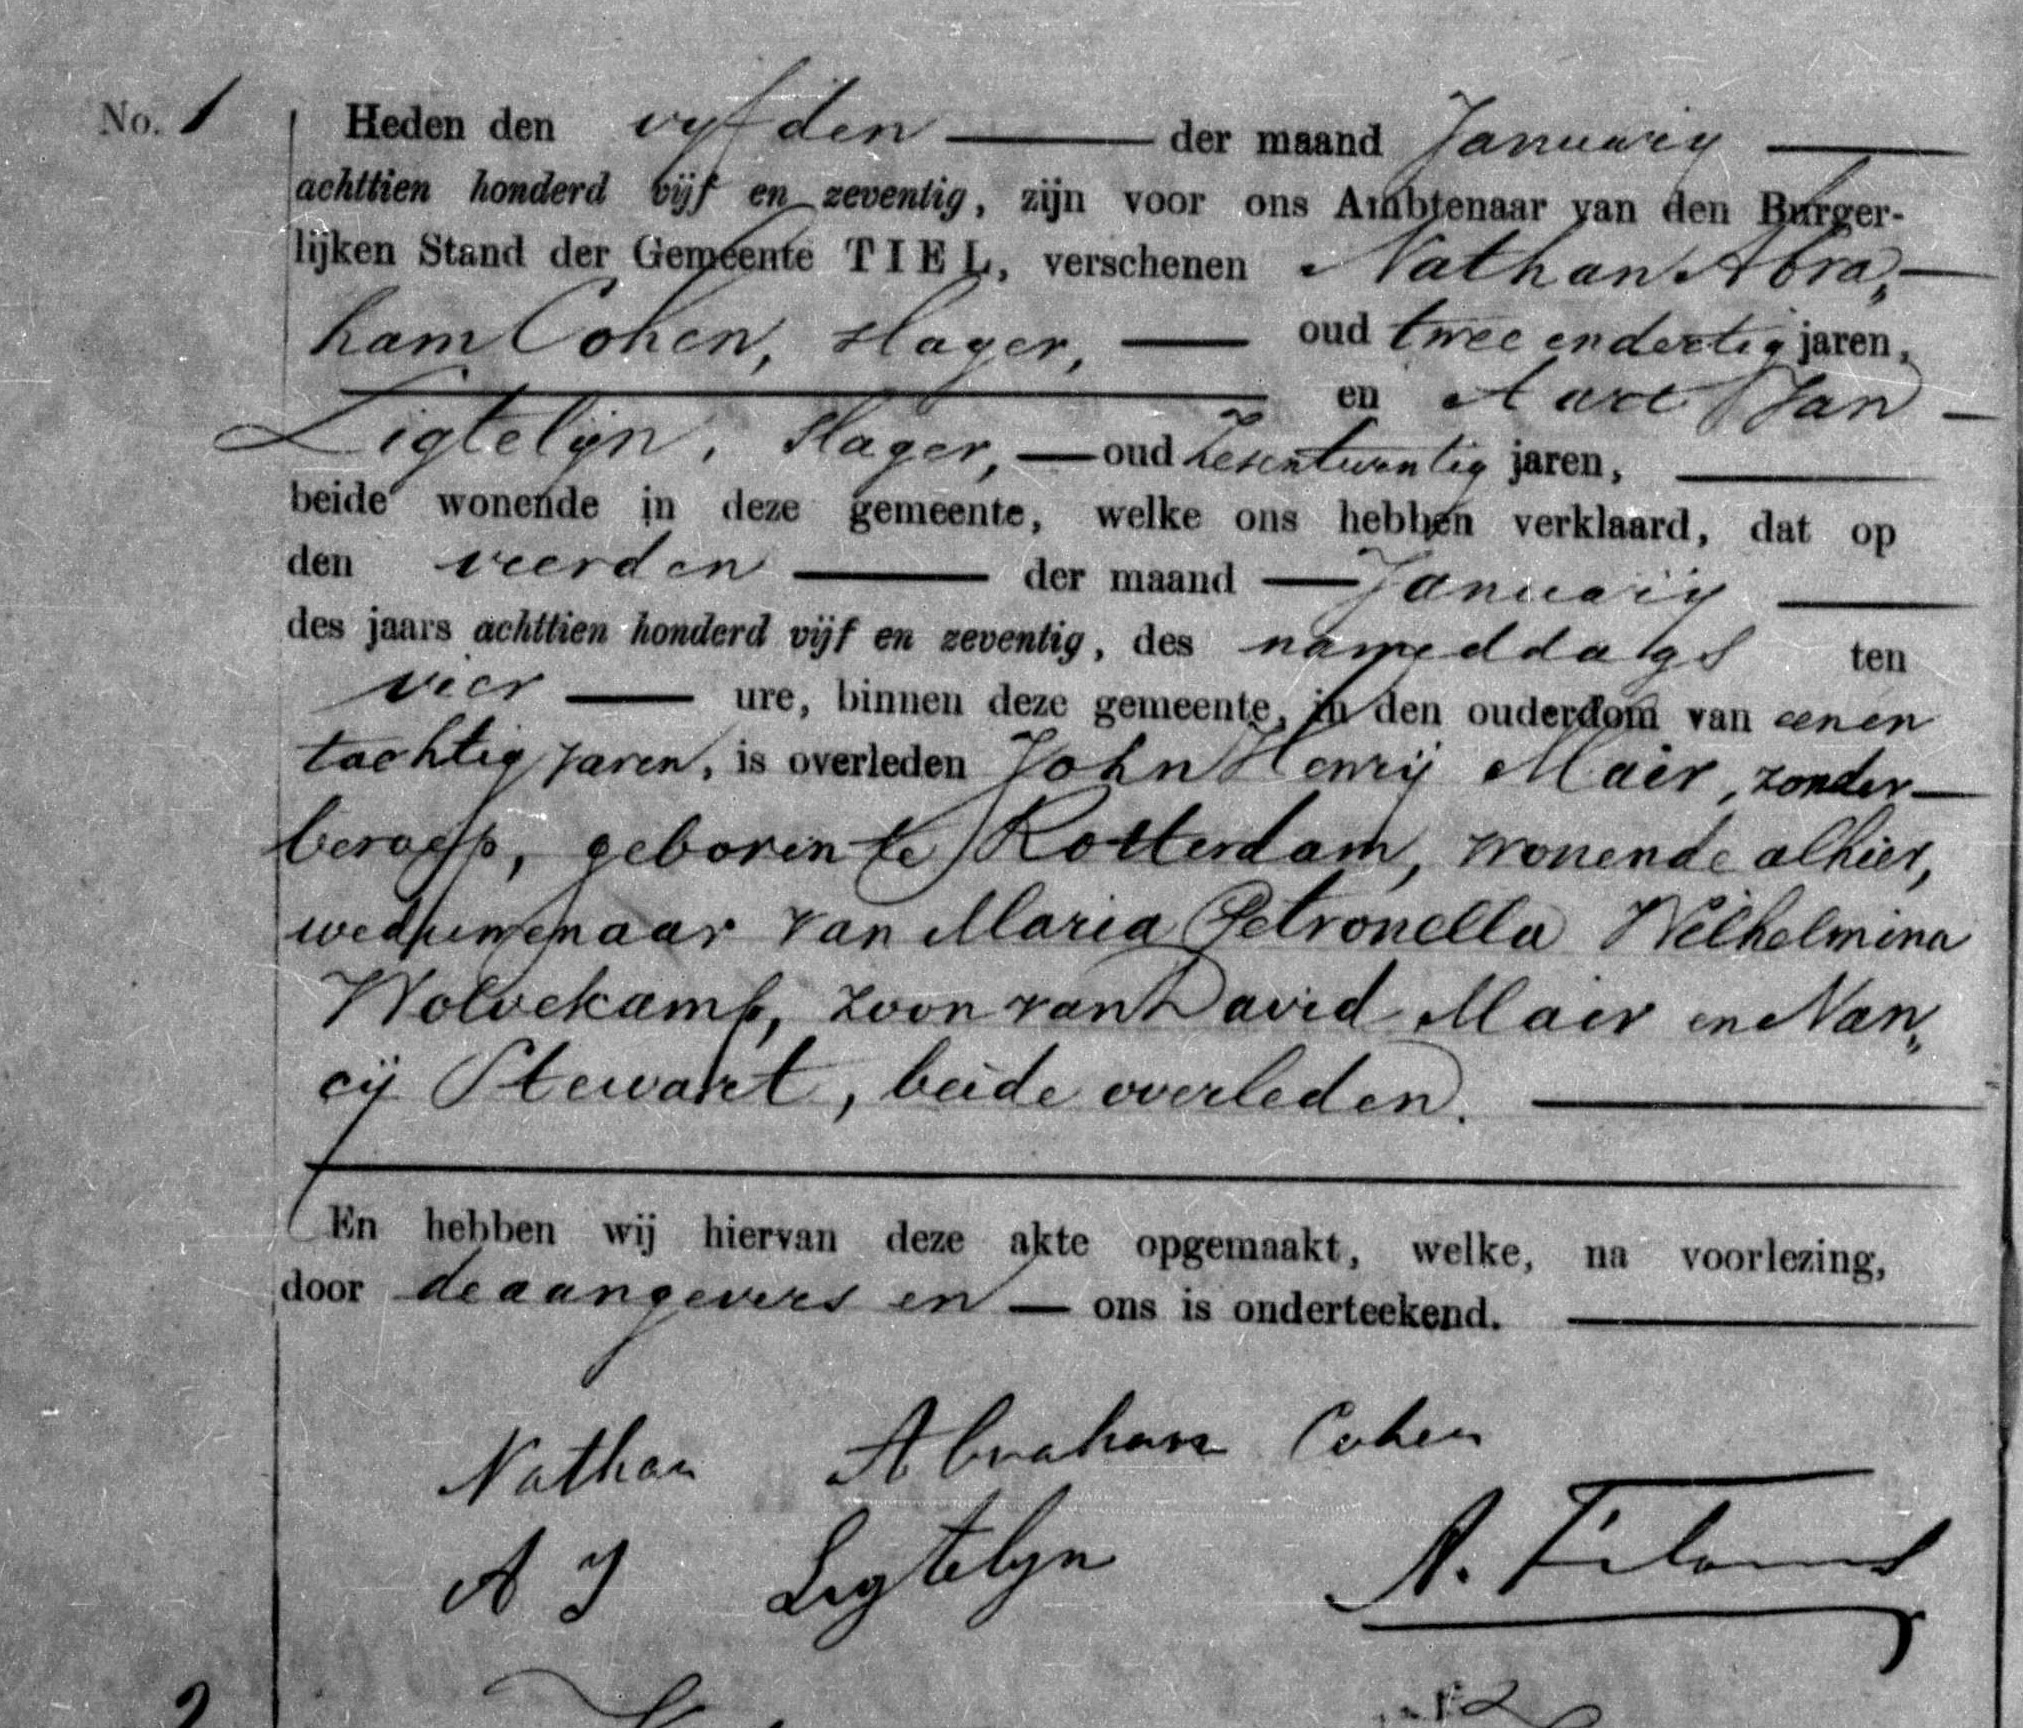 No. 1
Heden den vyfden der maand Januarij
achttien honderd vijf en zeventig, zijn voor ons Ambtenaar van den Burger-
lijken Stand der Gemeente TIEL, verschenen Nathan Abra„
ham Cohen, slager, oud twee en dertig jaren,
en Aart Jan
Ligtelijn, slager, oud zesentwintig jaren,
beide wonende in deze gemeente, welke ons hebben verklaard, dat op
den vierden der maand Januarij
des jaars achttien honderd vijf en zeventig, des nameddags ten
vier ure, binnen deze gemeente, in den ouderdom van een en
tachtig jaren, is overleden John Henrij Mair, zonder
beroep, geboren te Rotterdam, wonende alhier,
weduwenaar van Maria Petronella Wilhelmina
Wolvekamp, zoon van David Mair en Nan„
cij Stewart, beide overleden.
En hebben wij hiervan deze akte opgemaakt, welke, na voorlezing,
door de aangevers en ons is onderteekend.
Nathan Abraham Cohen
A J Ligtelyn
2